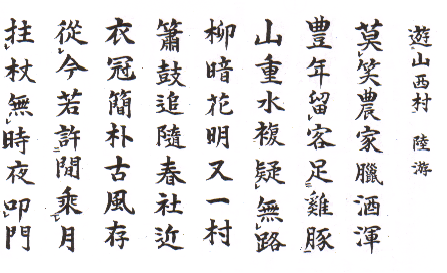 遊山西村 陸游
莫笑農家臘酒渾
豊年留客足雞豚
山重水複疑無路
柳暗花明又一村
簫鼓追隨春社近
衣冠簡朴古風存
從今若許閒乘月
拄杖無時夜叩門